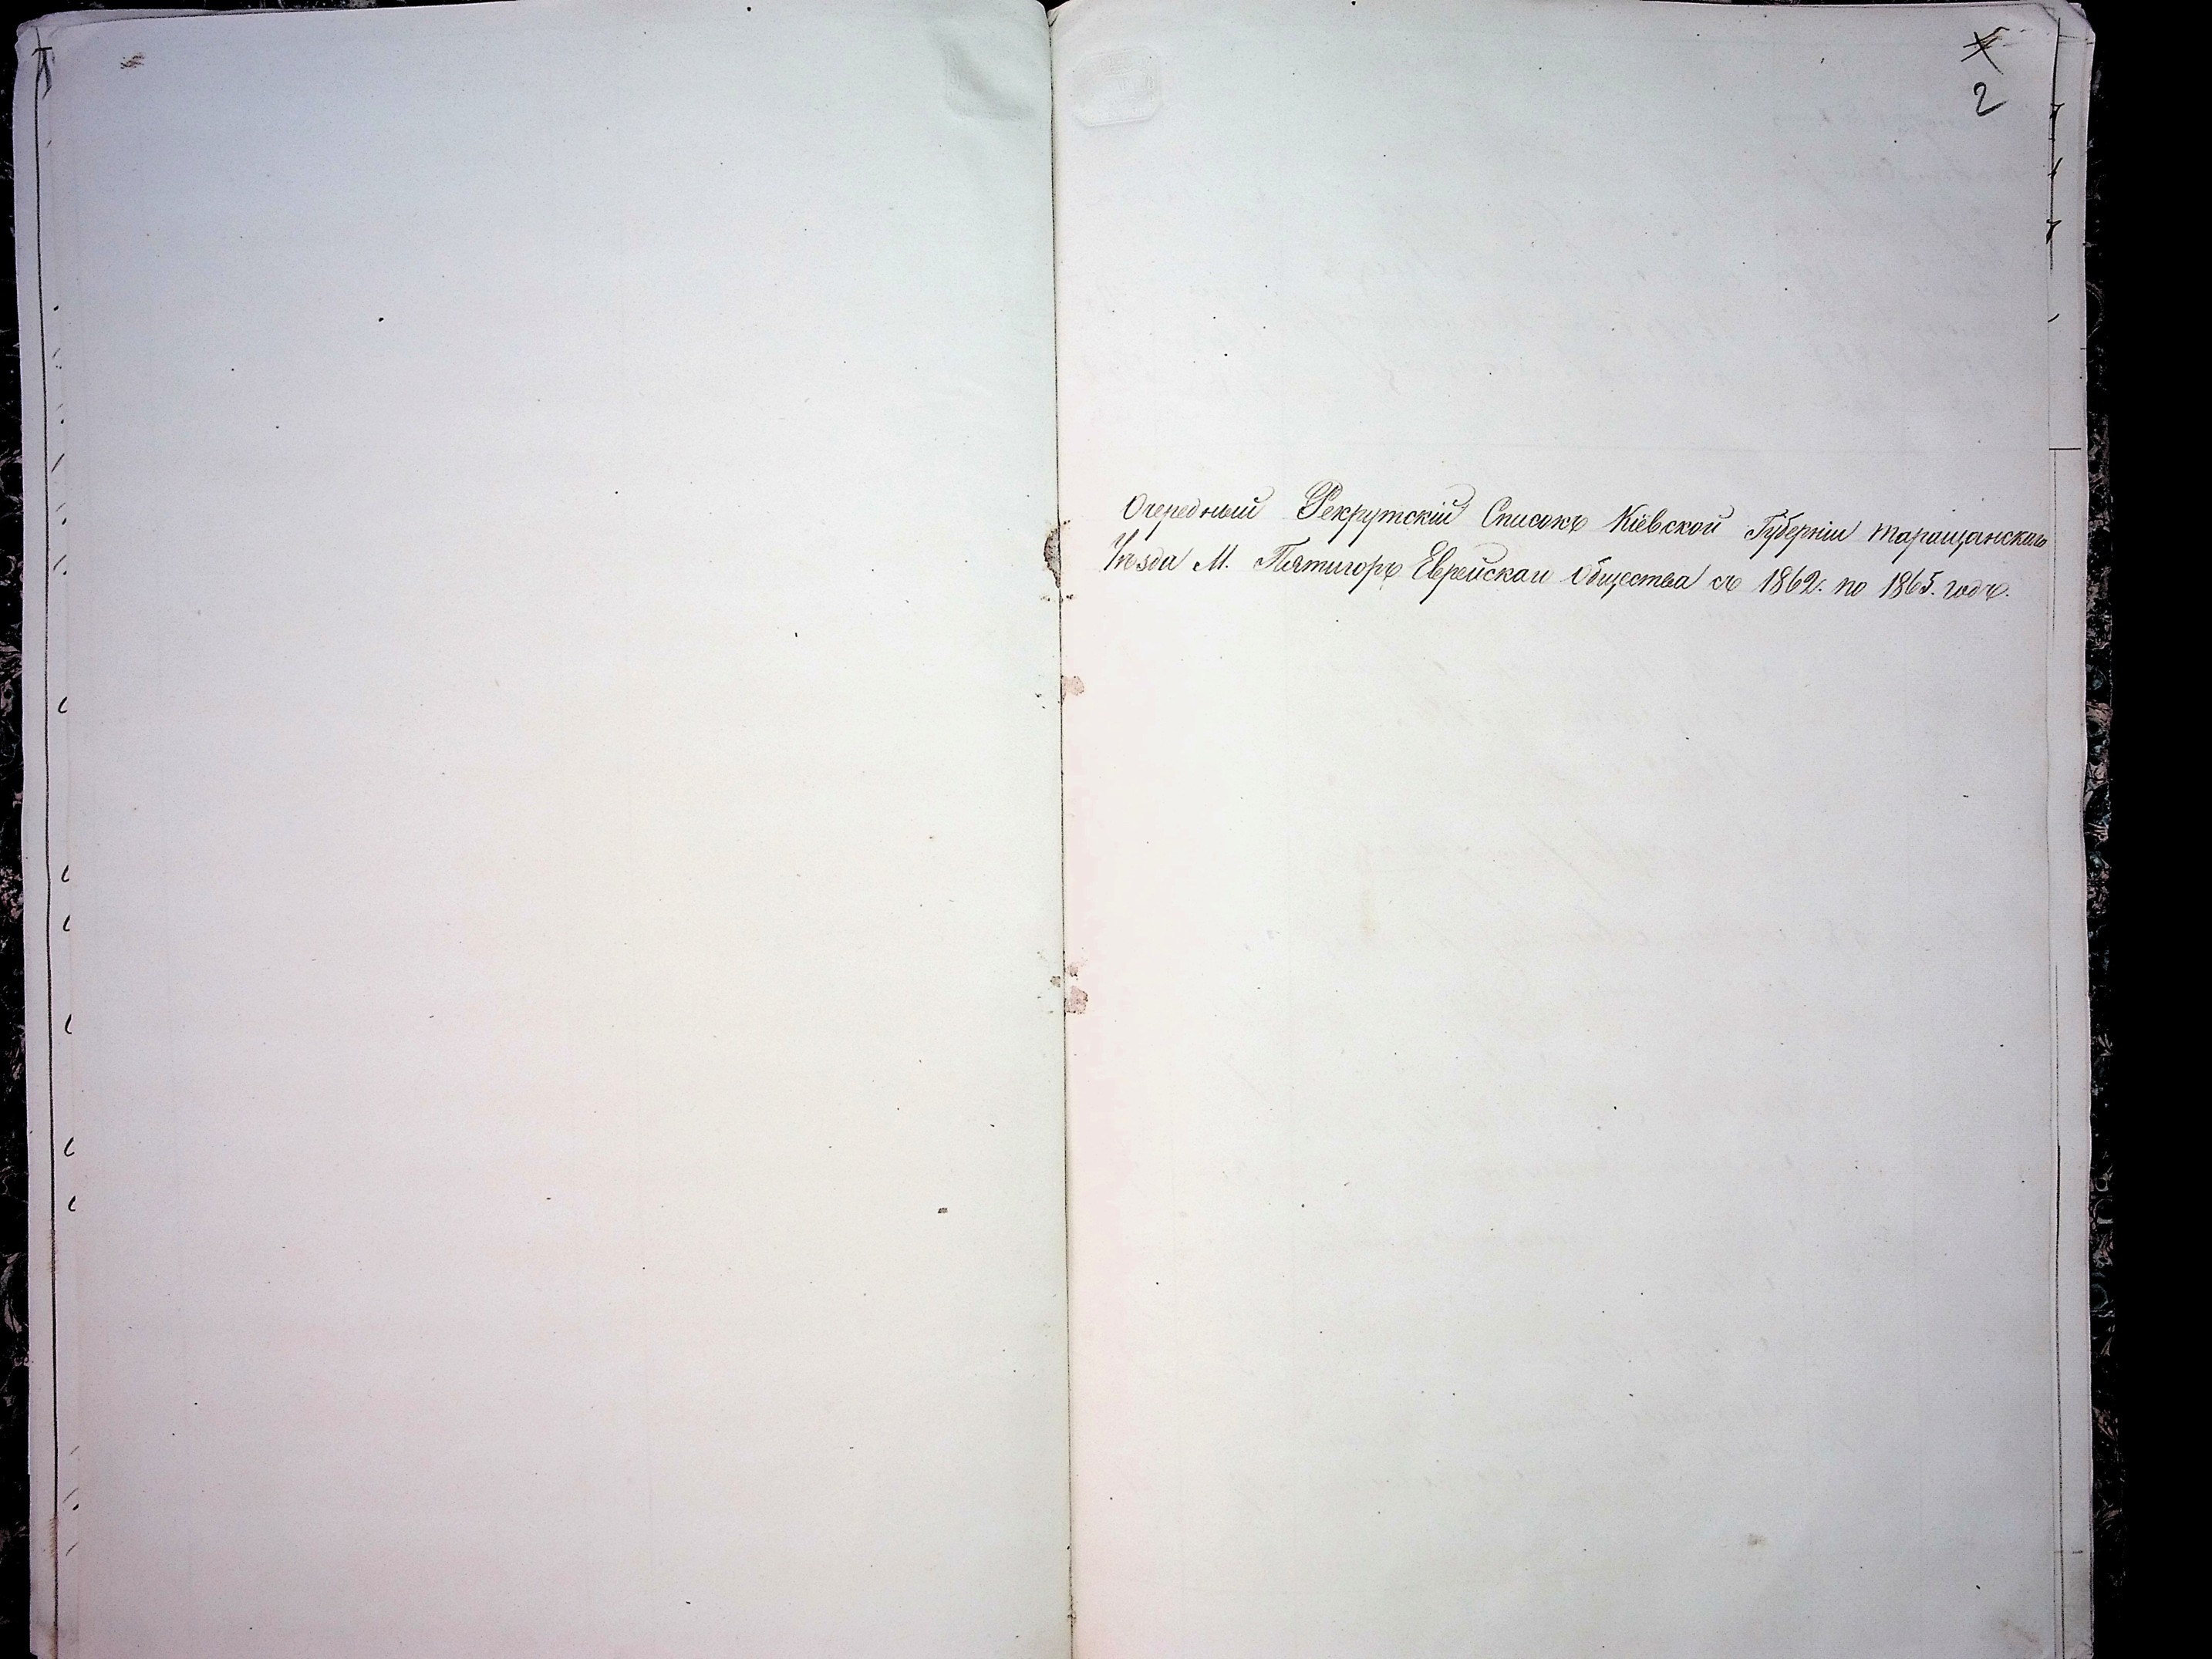 2
Очередный Рекрутскій Списокъ Кіевской Губерніи таращанскаго
Уезда М. Пятигоръ Еврейскаи Общества съ 1862. по 1865. годъ.